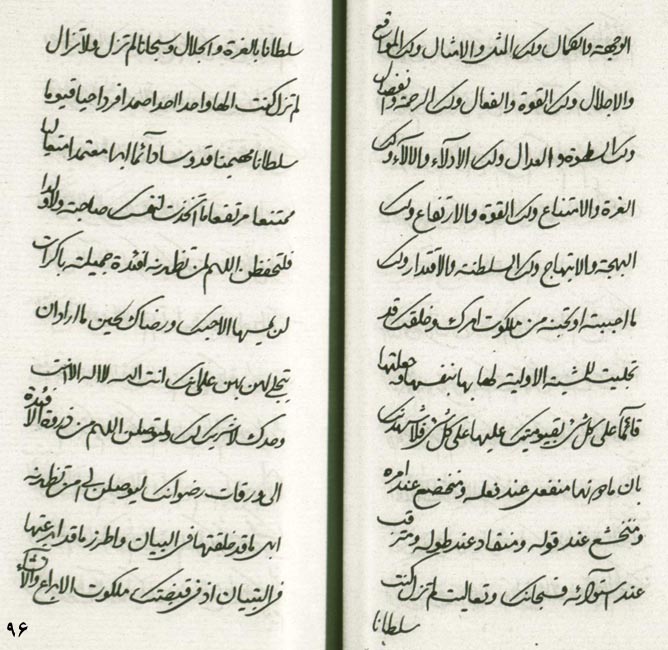 الوجهة والكمال ولك المثل والامثال ولك المواقع
والاجلال ولك القوة والفعال ولك الرحمة والفضال
ولك السطوة والعدال ولك الادلاء والالاء ولك
العزة والامتناع ولك القوة والارتفاع ولك
البهجة والابتهاج ولك السلطنة والاقتدار ولك
ما احببته او تحبنه من ملكوت امرك وخلقك قد
تجليت للمشية الاولية لها بها بنفسها وجعلتها
قائما على كل شئ بقيوميتك عليها على كل شئ فلاشهدنك
بان مادونها منفعل عند فعله ومنخضع عند امره
ومنخشع عند قوله ومنقاد عند طوله ومترقب
عند استوائه فسبحانك وتعاليت لم تزل كنت
سلطانا
سلطانا بالعزة والجلال وسبحانا لم تزل ولاتزال
لم تزل كنت الها واحدا احدا صمدا فردا حيا قيوما
سلطانا مهيمنا قدوسا دائما ابدا معتمدا متعاليا
ممتنعا مرتفعا ما اتخذت لنفسك صاحبة ولا ولدا
فلتحفظن اللهم لمن تظهرنه افئدة جميلة باكرات
لن يمسها الا حبك ورضاك لحين ما اراد ان
يتجلى لهن بهن على انك انت الله لا اله الا انت
وحدك لاشريك لك ولتوصلن اللهم من ذروة الافئدة
الى ورقات رضوانك ليوصلن الى من تظهرنه
ابهى ما قد خلقتها فى البيان واطرز ما قد ابدعتها
فى التبيان اذ فى قبضتك ملكوت الابداع والانشاء
٩٦